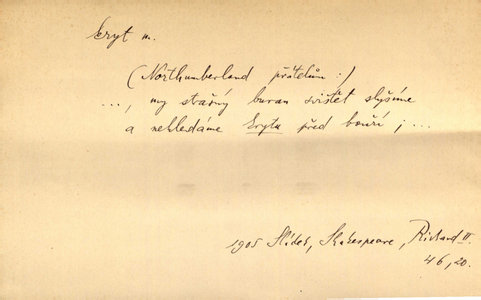 kryt m.
(Northumberland přátelům:)
..., my strašný buran svištět slyšíme
a nehledáme krytu před bouří; ...
1905 Sládek, Shakespeare, Richard II.
46, 20.